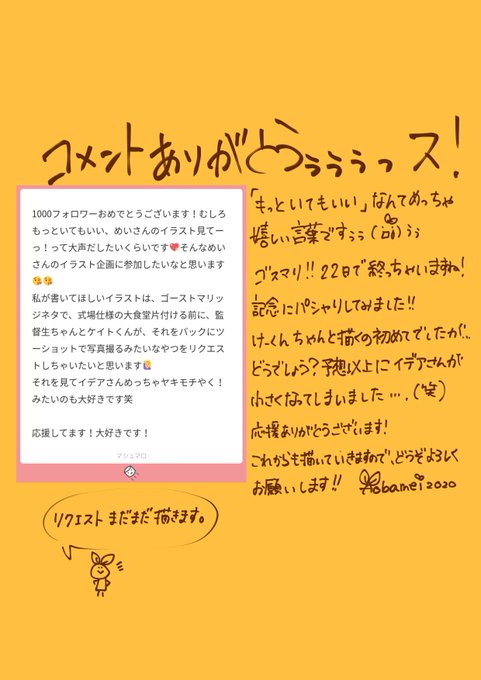 コメントありがとうぅぅぅっス!
1000フォロワーおめでとうございます！むしろ
もっといてもいい、めいさんのイラスト見てー
っ！って大声だしたいくらいです💖そんなめい
さんのイラスト企画に参加したいなと思います
😘😘
私が書いてほしいイラストは、ゴーストマリッ
ジネタで、式場仕様の大食堂片付ける前に、監
督生ちゃんとケイトくんが、それをバックにツ
ーショットで写真撮るみたいなやつをリクエス
トしちゃいたいと思います🙋
それを見てイデアさんめっちゃヤキモチやく！
みたいのも大好きです笑
応援してます！大好きです！
マシュマロ
「もっといてもいい」なんてめっちゃ
嬉しい言葉ですぅぅ
ゴスマリ!! 22日で終っちゃいますね!
記念にパシャりしてみました!!
けーくんちゃんと描くの初めてでしたが…
どうでしょう？予想以上にイデアさんが
小さくなってしまいました….(笑)
応援ありがとうございます!
これからも描いていきますので、どうぞよろしく
お願いします!! Aobamei2020
リクエストまだまだ描きます。